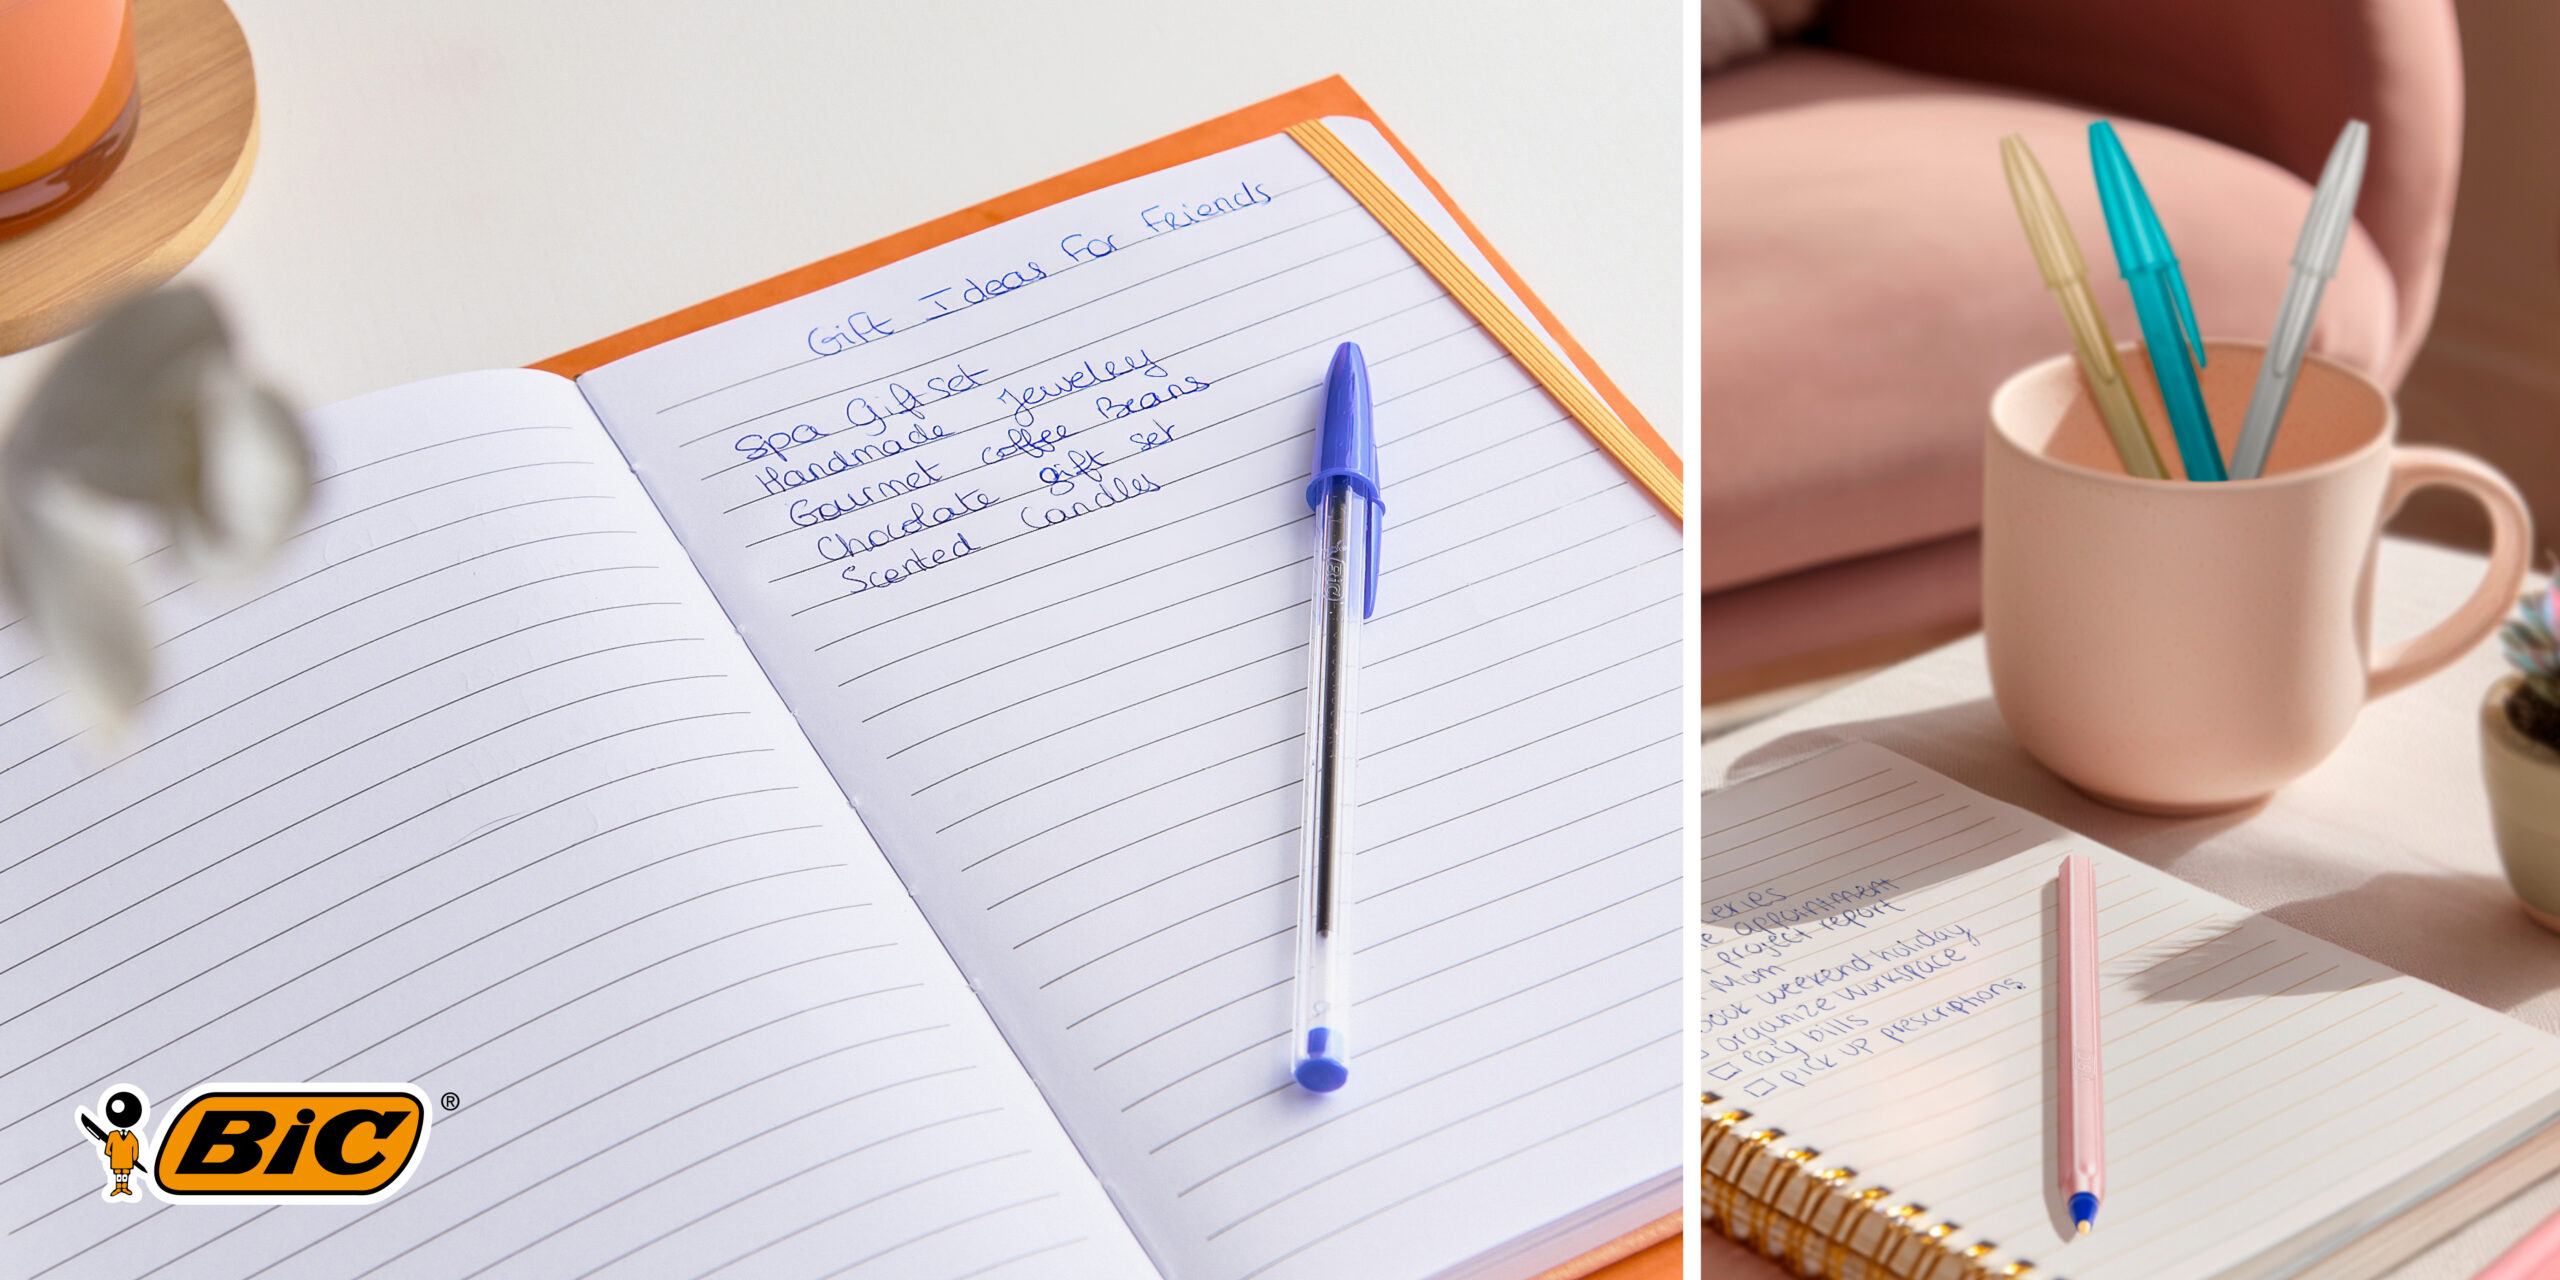 Gift Ideas For Friends
Spa Gift set
Handmade Jewelry
Gourmet coffee Beans
Chocolate gift set
Scented Candles
BiC
BiC®
appointment
project report
Mom
weekend holiday
organize workspace
pay bills
pick up prescriptions
BiC